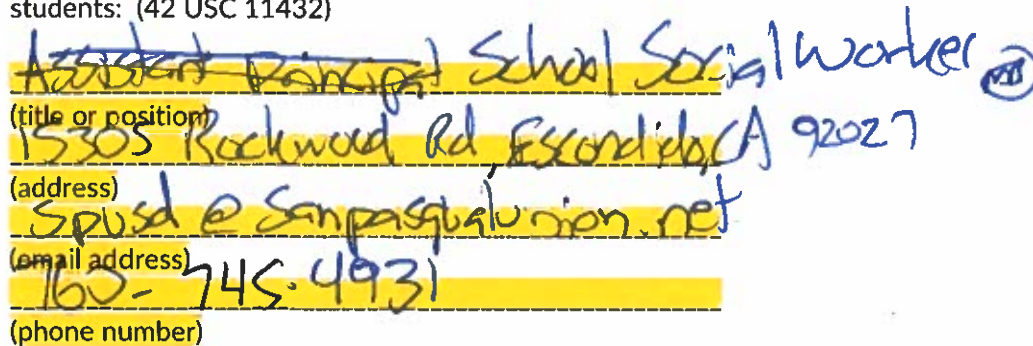 students: (42 USC 11432)
Assistant Principal School Social Worker
(title or position)
15305 Rockwood Rd, Escondido, CA 92027
(address)
Spusd @ Sanpasqualunion.net
(email address)
760-745.4931
(phone number)